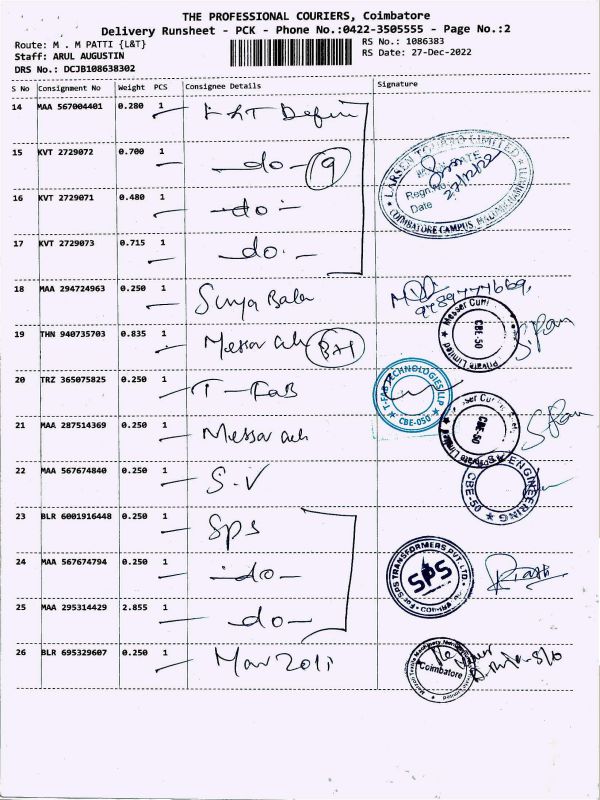 THE PROFESSIONAL COURIERS, Coimbatore
Delivery Runsheet - PCK - Phone No.:0422-3505555 - Page No.:2
Route: M . M PATTI {L&T}
Staff: ARUL AUGUSTIN
DRS No.: DCJB108638302
RS No.: 1086383
RS Date: 27-Dec-2022
S No Consignment No Weight PCS Consignee Details Signature
14 MAA 567004401 0.280 1 L&T
15 KVT 2729072 0.700 1 -do- 9
16 KVT 2729071 0.480 1 -do-
17 KVT 2729073 0.715 1 -do-
LARSEN TOUBRO LIMITED
Regn.No
Date 27/12/22
COIMBATORE CAMPUS,
18 MAA 294724963 0.250 1 Surya Bala
19 THN 940735703 0.835 1 Messer
Messer
CBE-50
Private Limited
20 TRZ 365075825 0.250 1 T-FAB
T-FAB TECHNOLOGIES LLP
CBE-050
21 MAA 287514369 0.250 1 Messer
CBE-50
22 MAA 567674840 0.250 1 S.V
ENGINEERING
CBE-50
23 BLR 6001916448 0.250 1 Sps
24 MAA 567674794 0.250 1 -do-
For SPS TRANSFORMERS PVT. LTD.
SPS
25 MAA 295314429 2.855 1 -do-
26 BLR 695329607 0.250 1
Coimbatore